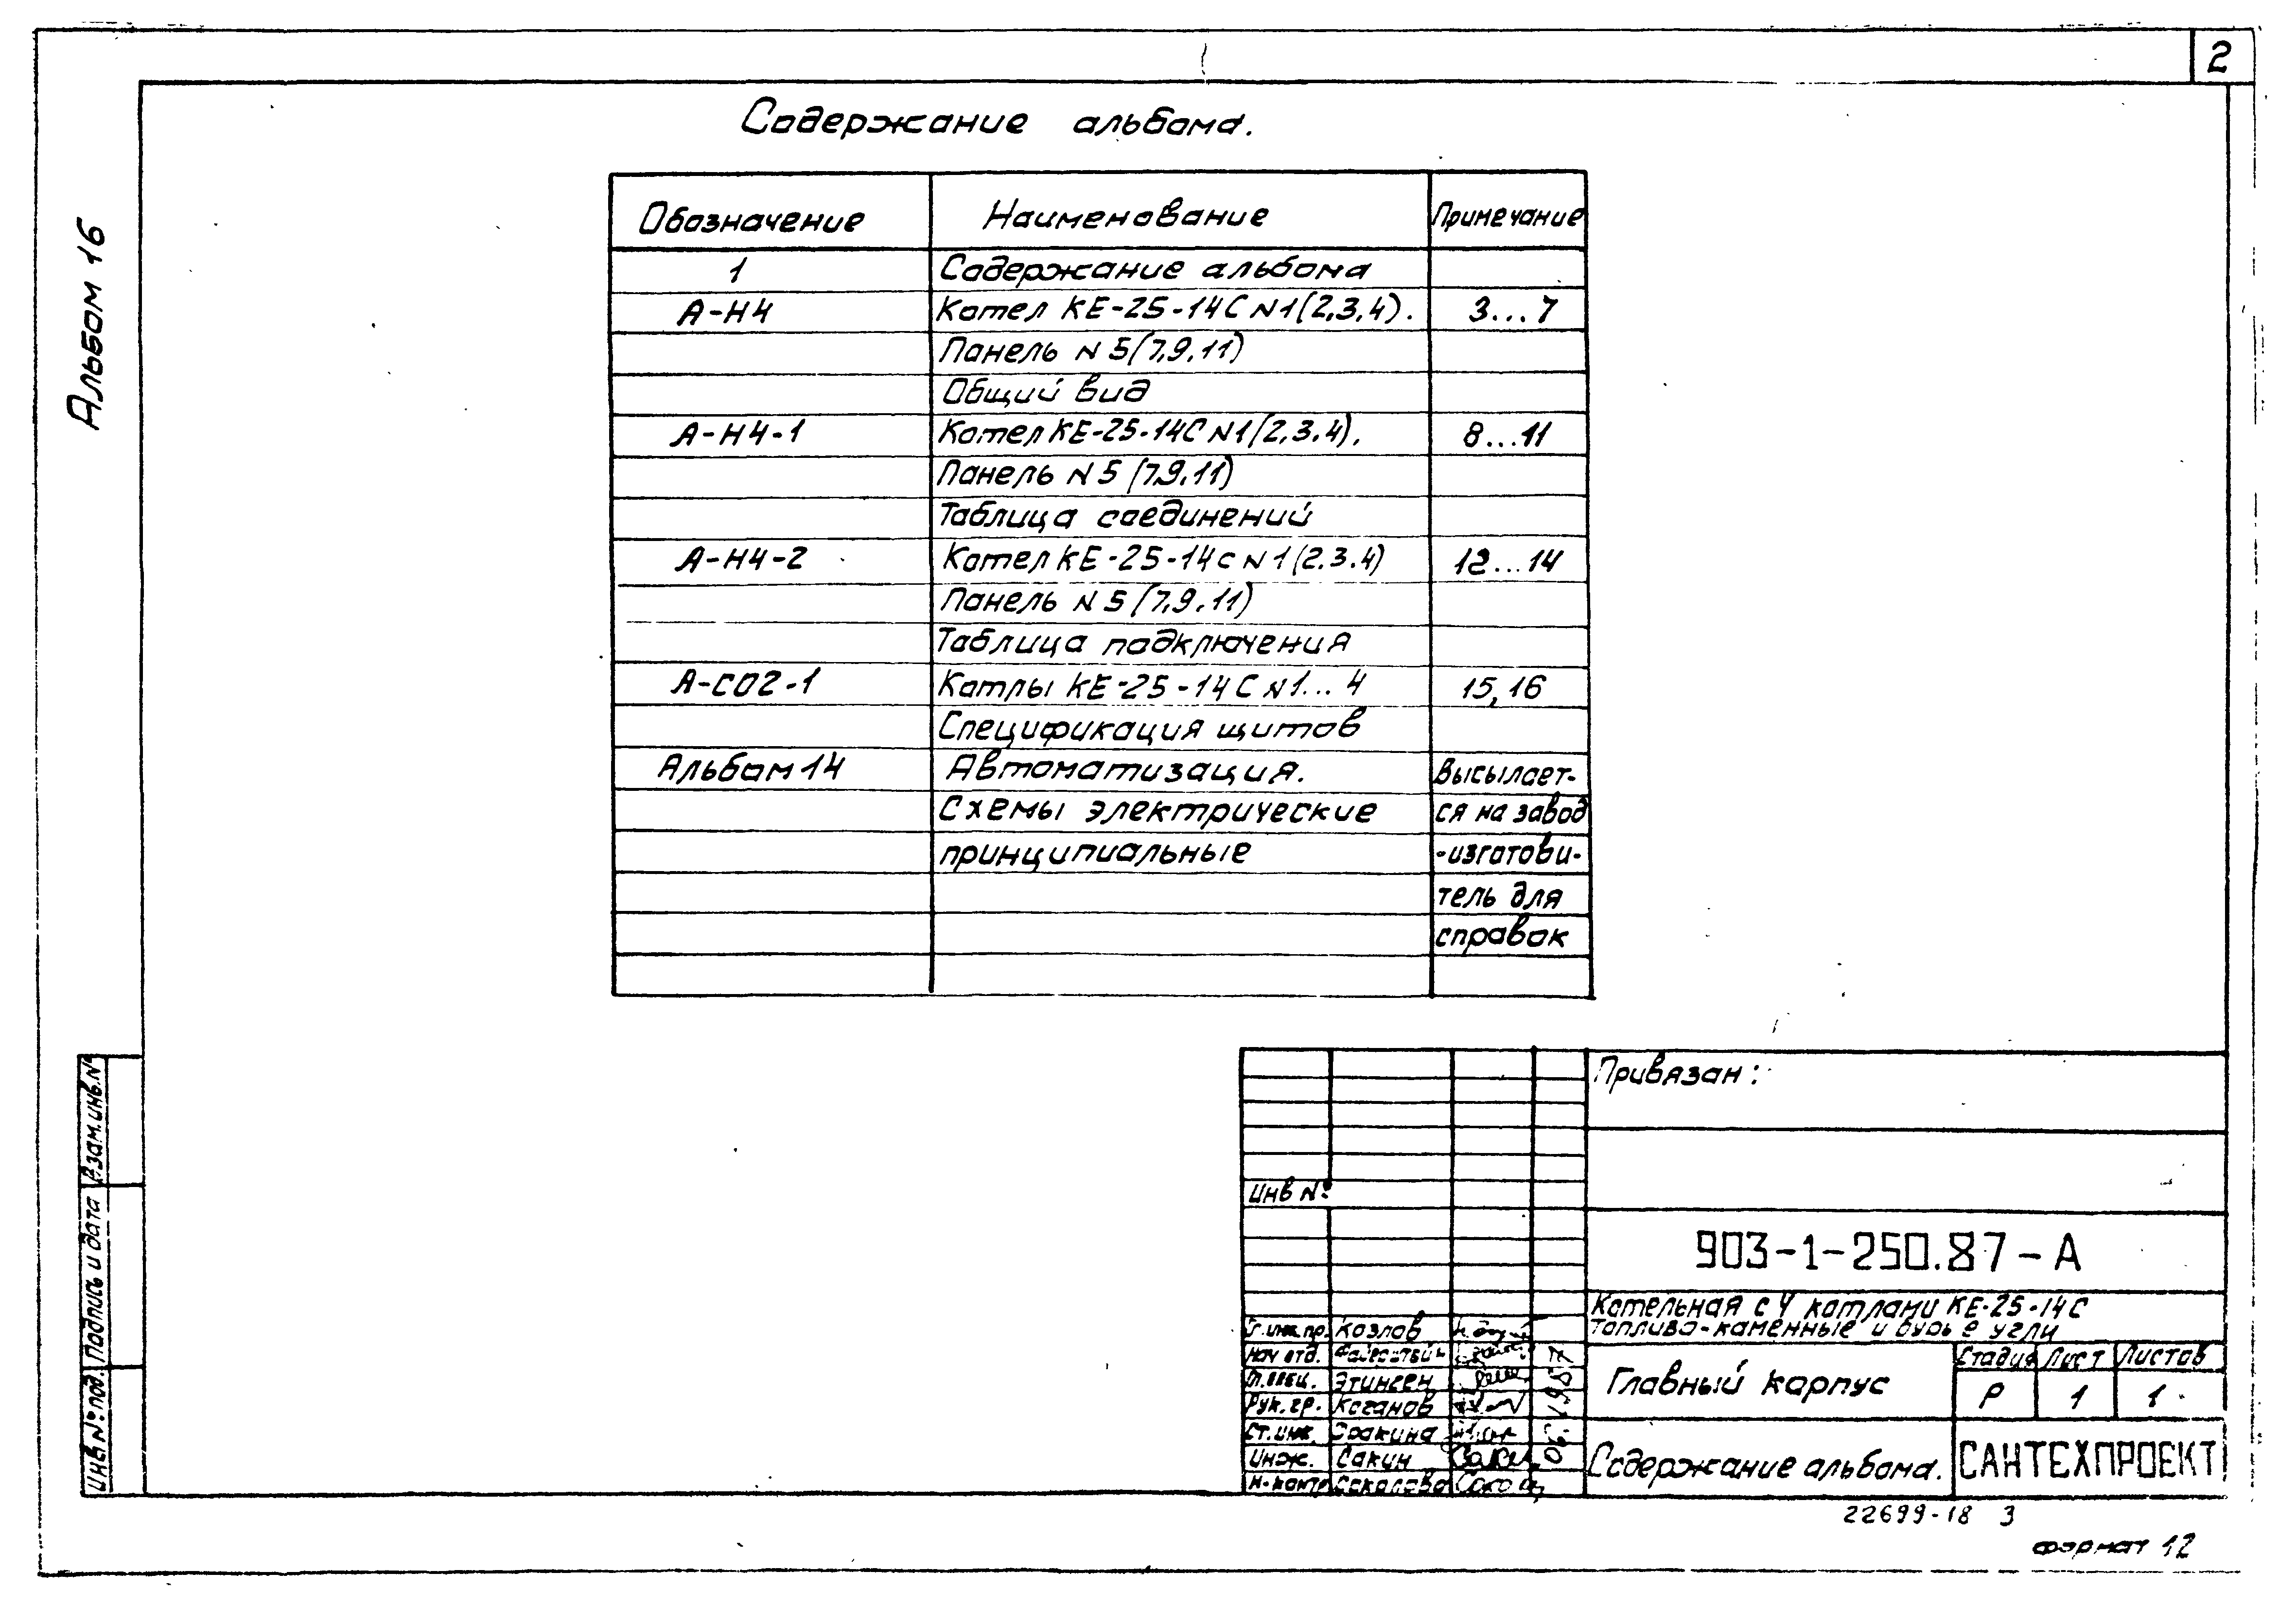 2
Содержание альбома.
Альбом 16
Обозначение Наименование Примечание
1 Содержание альбома
А-Н4 Котел КЕ-25-14С N1(2,3,4). 3...7
Панель N 5(7,9,11)
Общий вид
А-Н4-1 Котел КЕ-25-14С N1(2,3,4). 8...11
Панель N 5 (7,9,11)
Таблица соединений
А-Н4-2 Котел КЕ-25-14с N1(2.3.4) 12...14
Панель N 5 (7,9,11)
Таблица подключения
А-СО2-1 Котлы КЕ-25-14С N1...4 15,16
Спецификация щитов
Альбом 14 Автоматизация. Высылает-
Схемы электрические ся на завод
принципиальные -изготови-
тель для
справок
Привязан:
Инв №
903-1-250.87-А
Котельная с 4 котлами КЕ-25-14С
Топливо-каменные и бурые угли
Гл.инж.пр. Козлов
Нач отд.
Гл.спец. Этинген
Рук.гр. Коганов
Ст.инж.
Инж. Сакин
Н-контр Соколова
06.1987
Главный корпус
Стадия Лист Листов
Р 1 1
Содержание альбома.
САНТЕХПРОЕКТ
Инв №под. Подпись и дата Взам.инв.№
22699-18 3
Формат 12